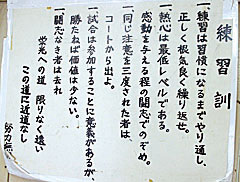 練習訓
一、練習は習慣になるまでやり通し、
正しく根気良く繰り返せ。
一、熱心は最低レベルである。
感動を与える程の闘志でのぞめ。
一、同じ注意を三度された者は、
コートから出よ。
一、試合は参加することに意義があるが、
勝たねば価値は少ない。
一、闘志なき者は去れ
栄光への道、限りなく遠い
この道に近道なし
努力無